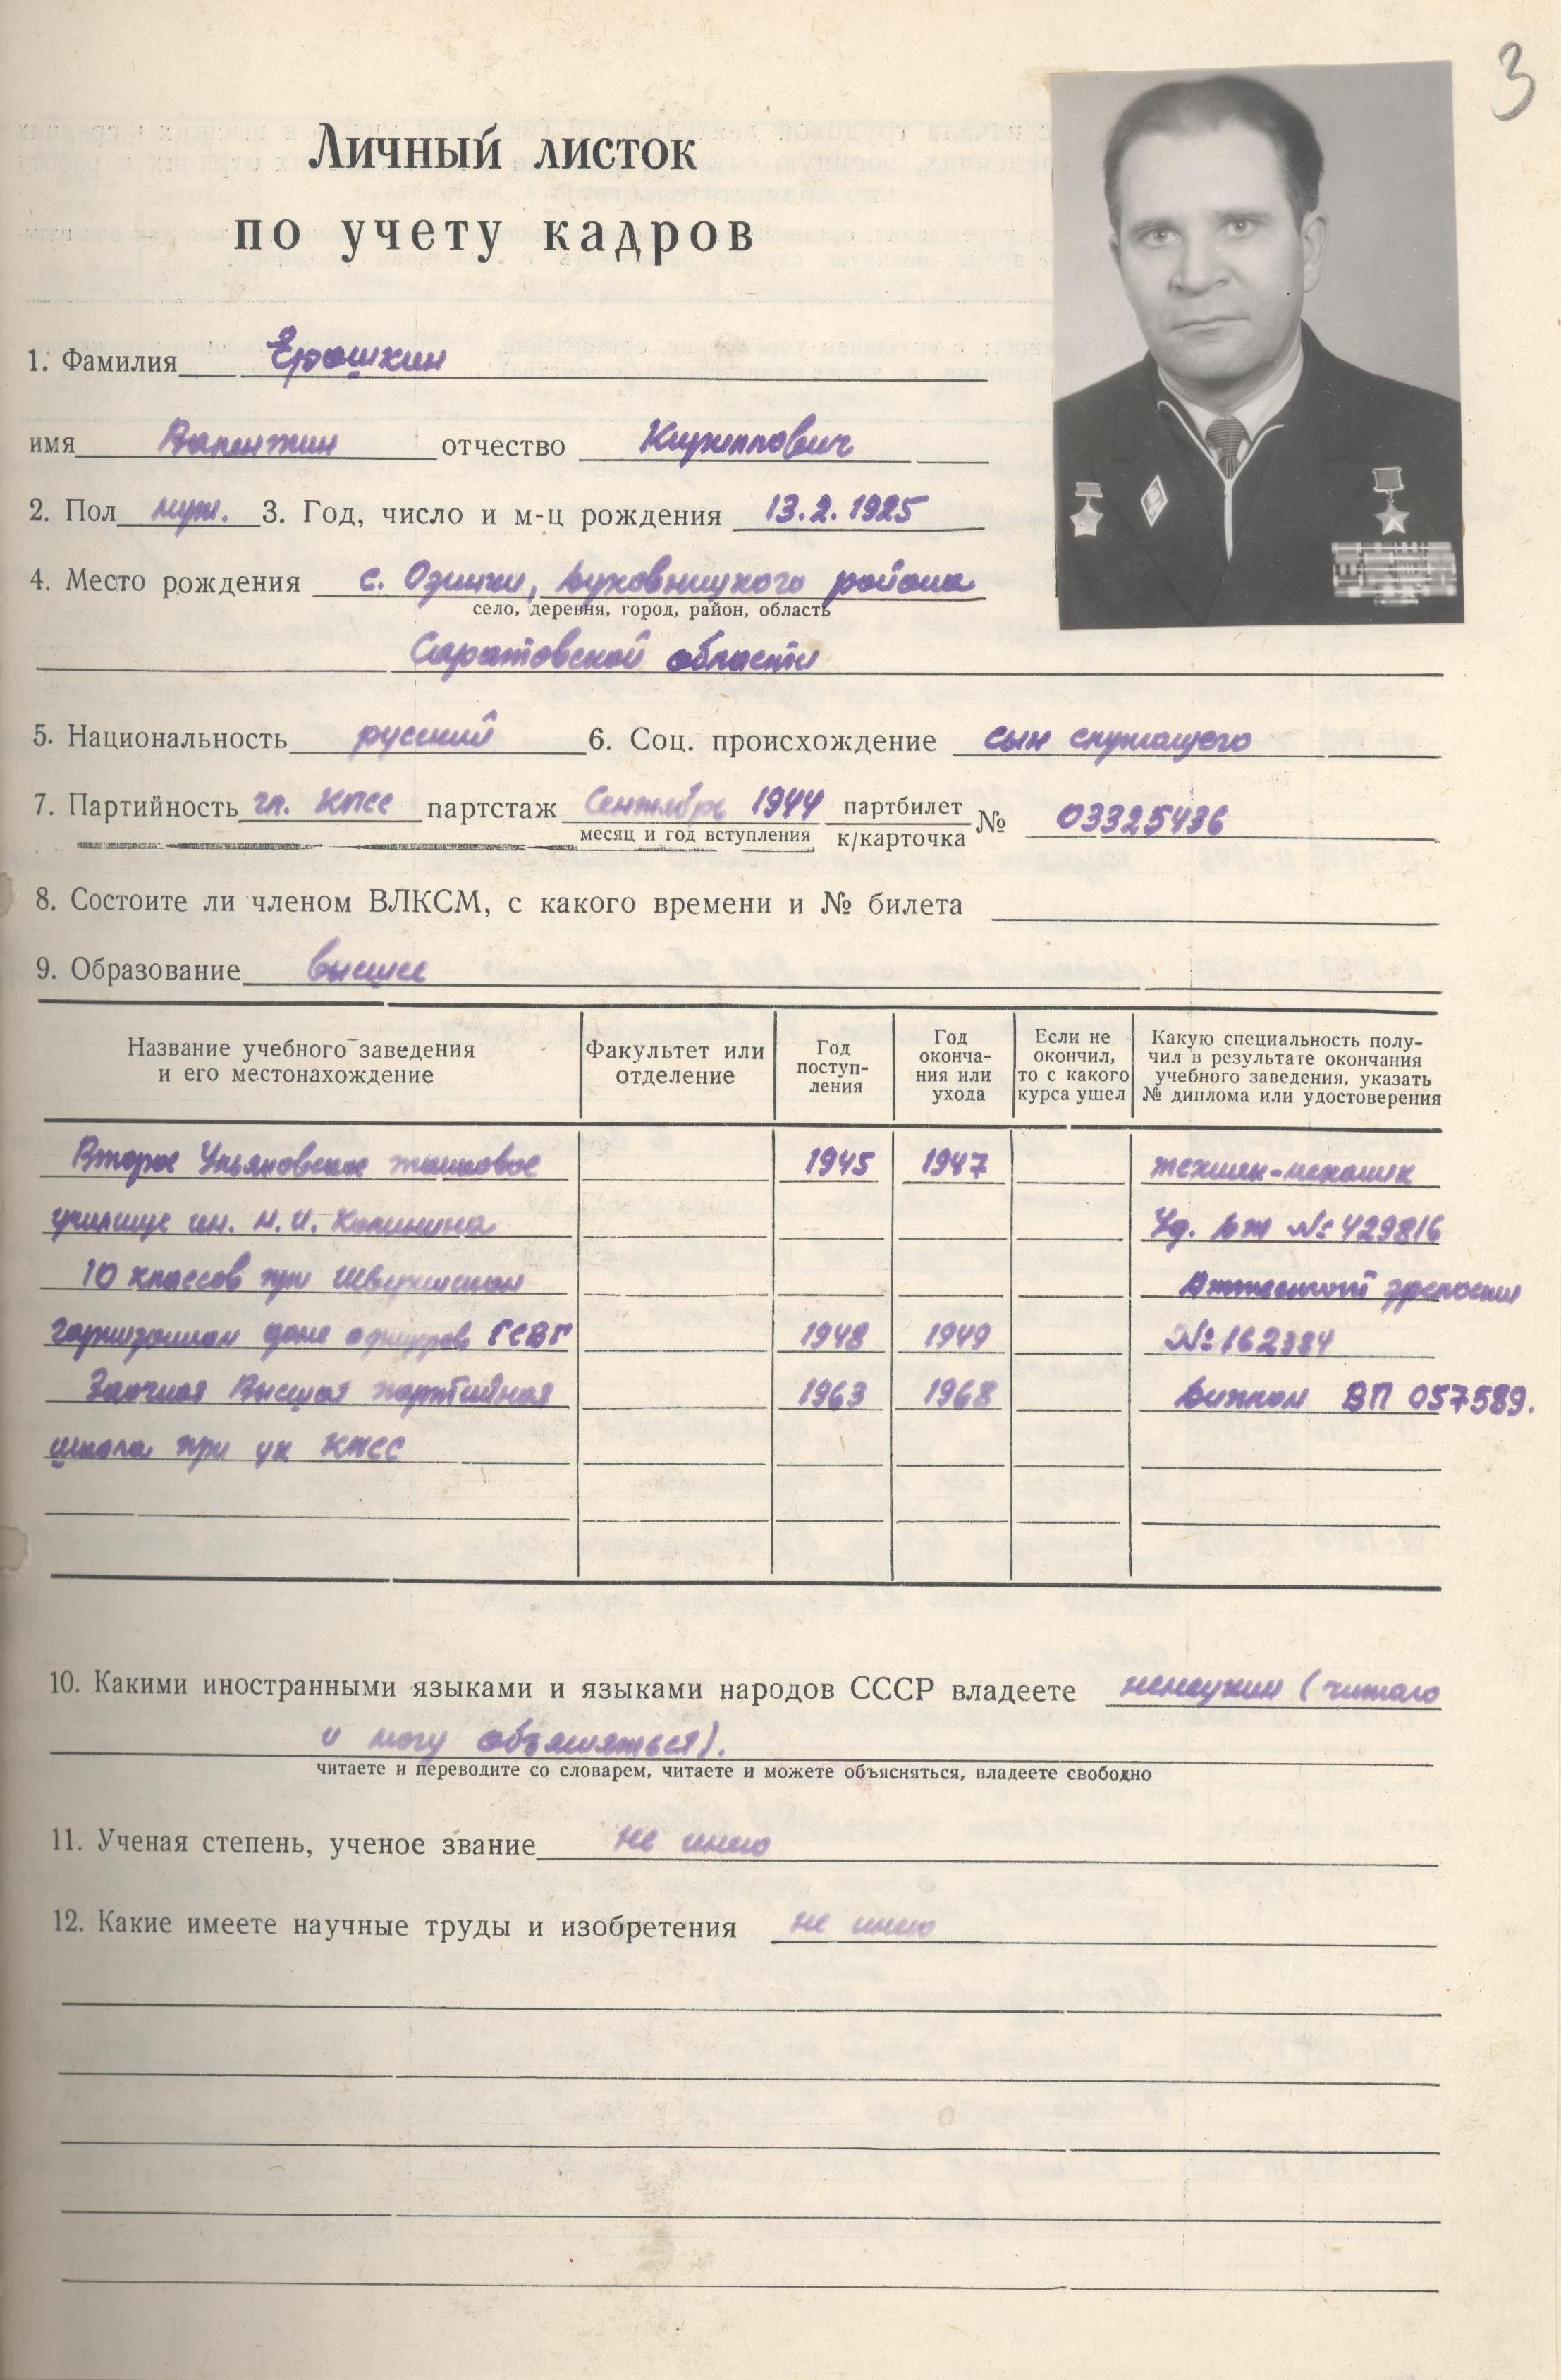 3
Личный листок
по учету кадров
1. Фамилия Ерошкин
имя Валентин отчество Кириллович
2. Пол муж. 3. Год, число и м-ц рождения 13.2.1925
4. Место рождения с. Озинки, Духовницкого района
село, деревня, город, район, область
Саратовской области
5. Национальность русский 6. Соц. происхождение сын служащего
7. Партийность чл. КПСС партстаж Сентябрь 1944 партбилет № 03325436
месяц и год вступления к/карточка
8. Состоите ли членом ВЛКСМ, с какого времени и № билета
9. Образование высшее
Название учебного заведения и его местонахождение Факультет или отделение Год поступ-ления Год оконча-ния или ухода Если не окончил, то с какого курса ушел Какую специальность полу-чил в результате окончания учебного заведения, указать № диплома или удостоверения
Второе Ульяновское танковое 1945 1947 техник-механик
училище им. М.И. Калинина Уд. ВТ № 429816
10 классов при Аттестат зрелости
гарнизонном доме офицеров ГСВГ 1948 1949 № 162384
Заочная Высшая партийная 1963 1968 Диплом ВП 057589.
школа при ЦК КПСС
10. Какими иностранными языками и языками народов СССР владеете немецким (читаю
и могу объясняться).
читаете и переводите со словарем, читаете и можете объясняться, владеете свободно
11. Ученая степень, ученое звание не имею
12. Какие имеете научные труды и изобретения не имею